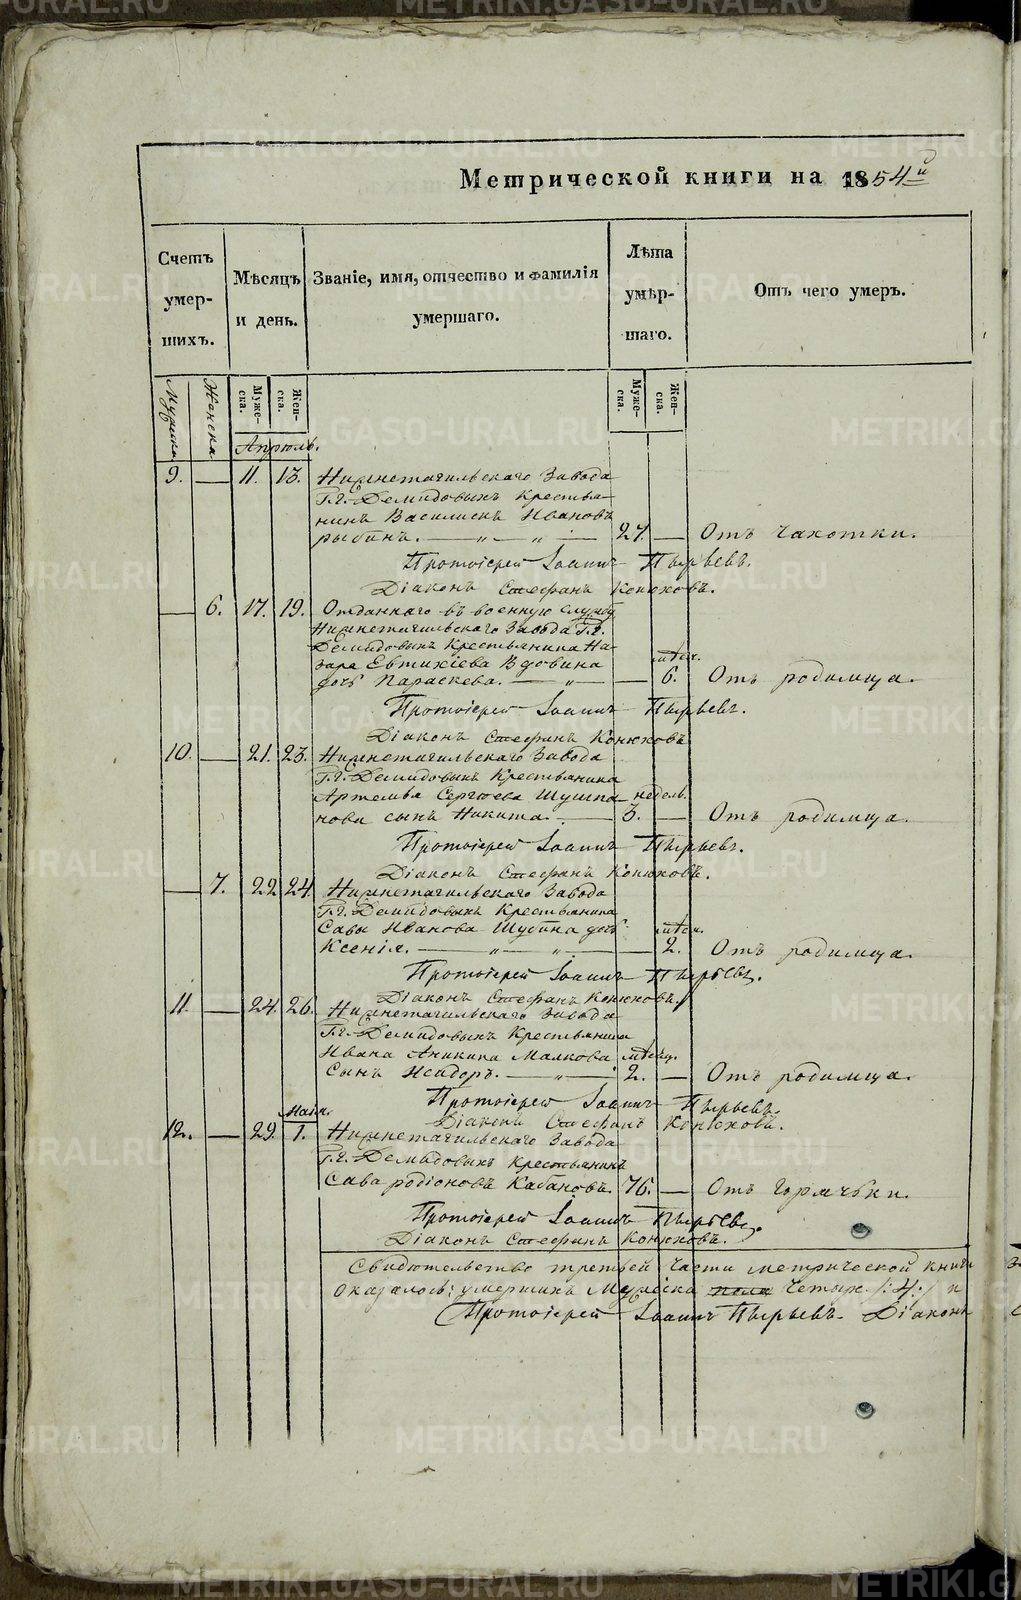 Метрической книги на 1854й
Счетъ умер- шихъ.
Мѣсяцъ и день.
Званіе, имя, отчество и фамилія умершаго.
Лѣта умер- шаго.
Отъ чего умеръ.
Мужска.
Женска.
Муже- ска.
Жен- ска.
Муже- ска.
Жен- ска.
Апрѣль.
9. — 11. 13. Нижнетагильскаго Завода
Г.г. Демидовыхъ Крестья-
нинъ Василискъ Ивановъ
рыбинъ. 27. — Отъ Чахотки.
Протоіерей Іоаннъ Пырьевъ.
Діаконъ Стефанъ Конюховъ.
— 6. 17. 19. Отданнаго въ военную службу
Нижнетагильскаго Завода Г.г.
Демидовыхъ Крестьянина На-
зара Евтихіева Вдовина мѣсяц.
дочь Параскева. — 6. Отъ родимца.
Протоіерей Іоаннъ Пырьевъ.
Діаконъ Стефанъ Конюховъ
10. — 21. 23. Нижнетагильскаго Завода
Г.г. Демидовыхъ Крестьянина
Артемья Сергѣева Шушпа- недель.
нова сынъ Никита. 3. — Отъ родимца.
Протоіерей Іоаннъ Пырьевъ.
Діаконъ Стефанъ Конюховъ.
— 7. 22 24. Нижнетагильскаго Завода
Г.г. Демидовыхъ Крестьянина
Савы Иванова Шубина дочь мѣсяц.
Ксенія. — 2. Отъ родимца.
Протоіерей Іоаннъ Пырьевъ.
Діаконъ Стефанъ Конюховъ
11. — 24. 26. Нижнетагильскаго Завода
Г.г. Демидовыхъ Крестьянина
Ивана Аникина Малкова мѣсяц.
Сынъ Исидоръ. 2. — Отъ родимца.
Протоіерей Іоаннъ Пырьевъ.
Діаконъ Стефанъ Конюховъ.
Маія.
12. — 29. 1. Нижнетагильскаго Завода
Г.г. Демидовыхъ Крестьянинъ
Сава родіоновъ Кабановъ. 76. — Отъ Горячки.
Протоіерей Іоаннъ Пырьевъ.
Діаконъ Стефанъ Конюховъ.
Свидѣтельство третьей части метрической книги
оказалось: умершихъ Мужеска пола четыре /:4:/ и
Протоіерей Іоаннъ Пырьевъ. Діаконъ
METRIKI.GASO-URAL.RU